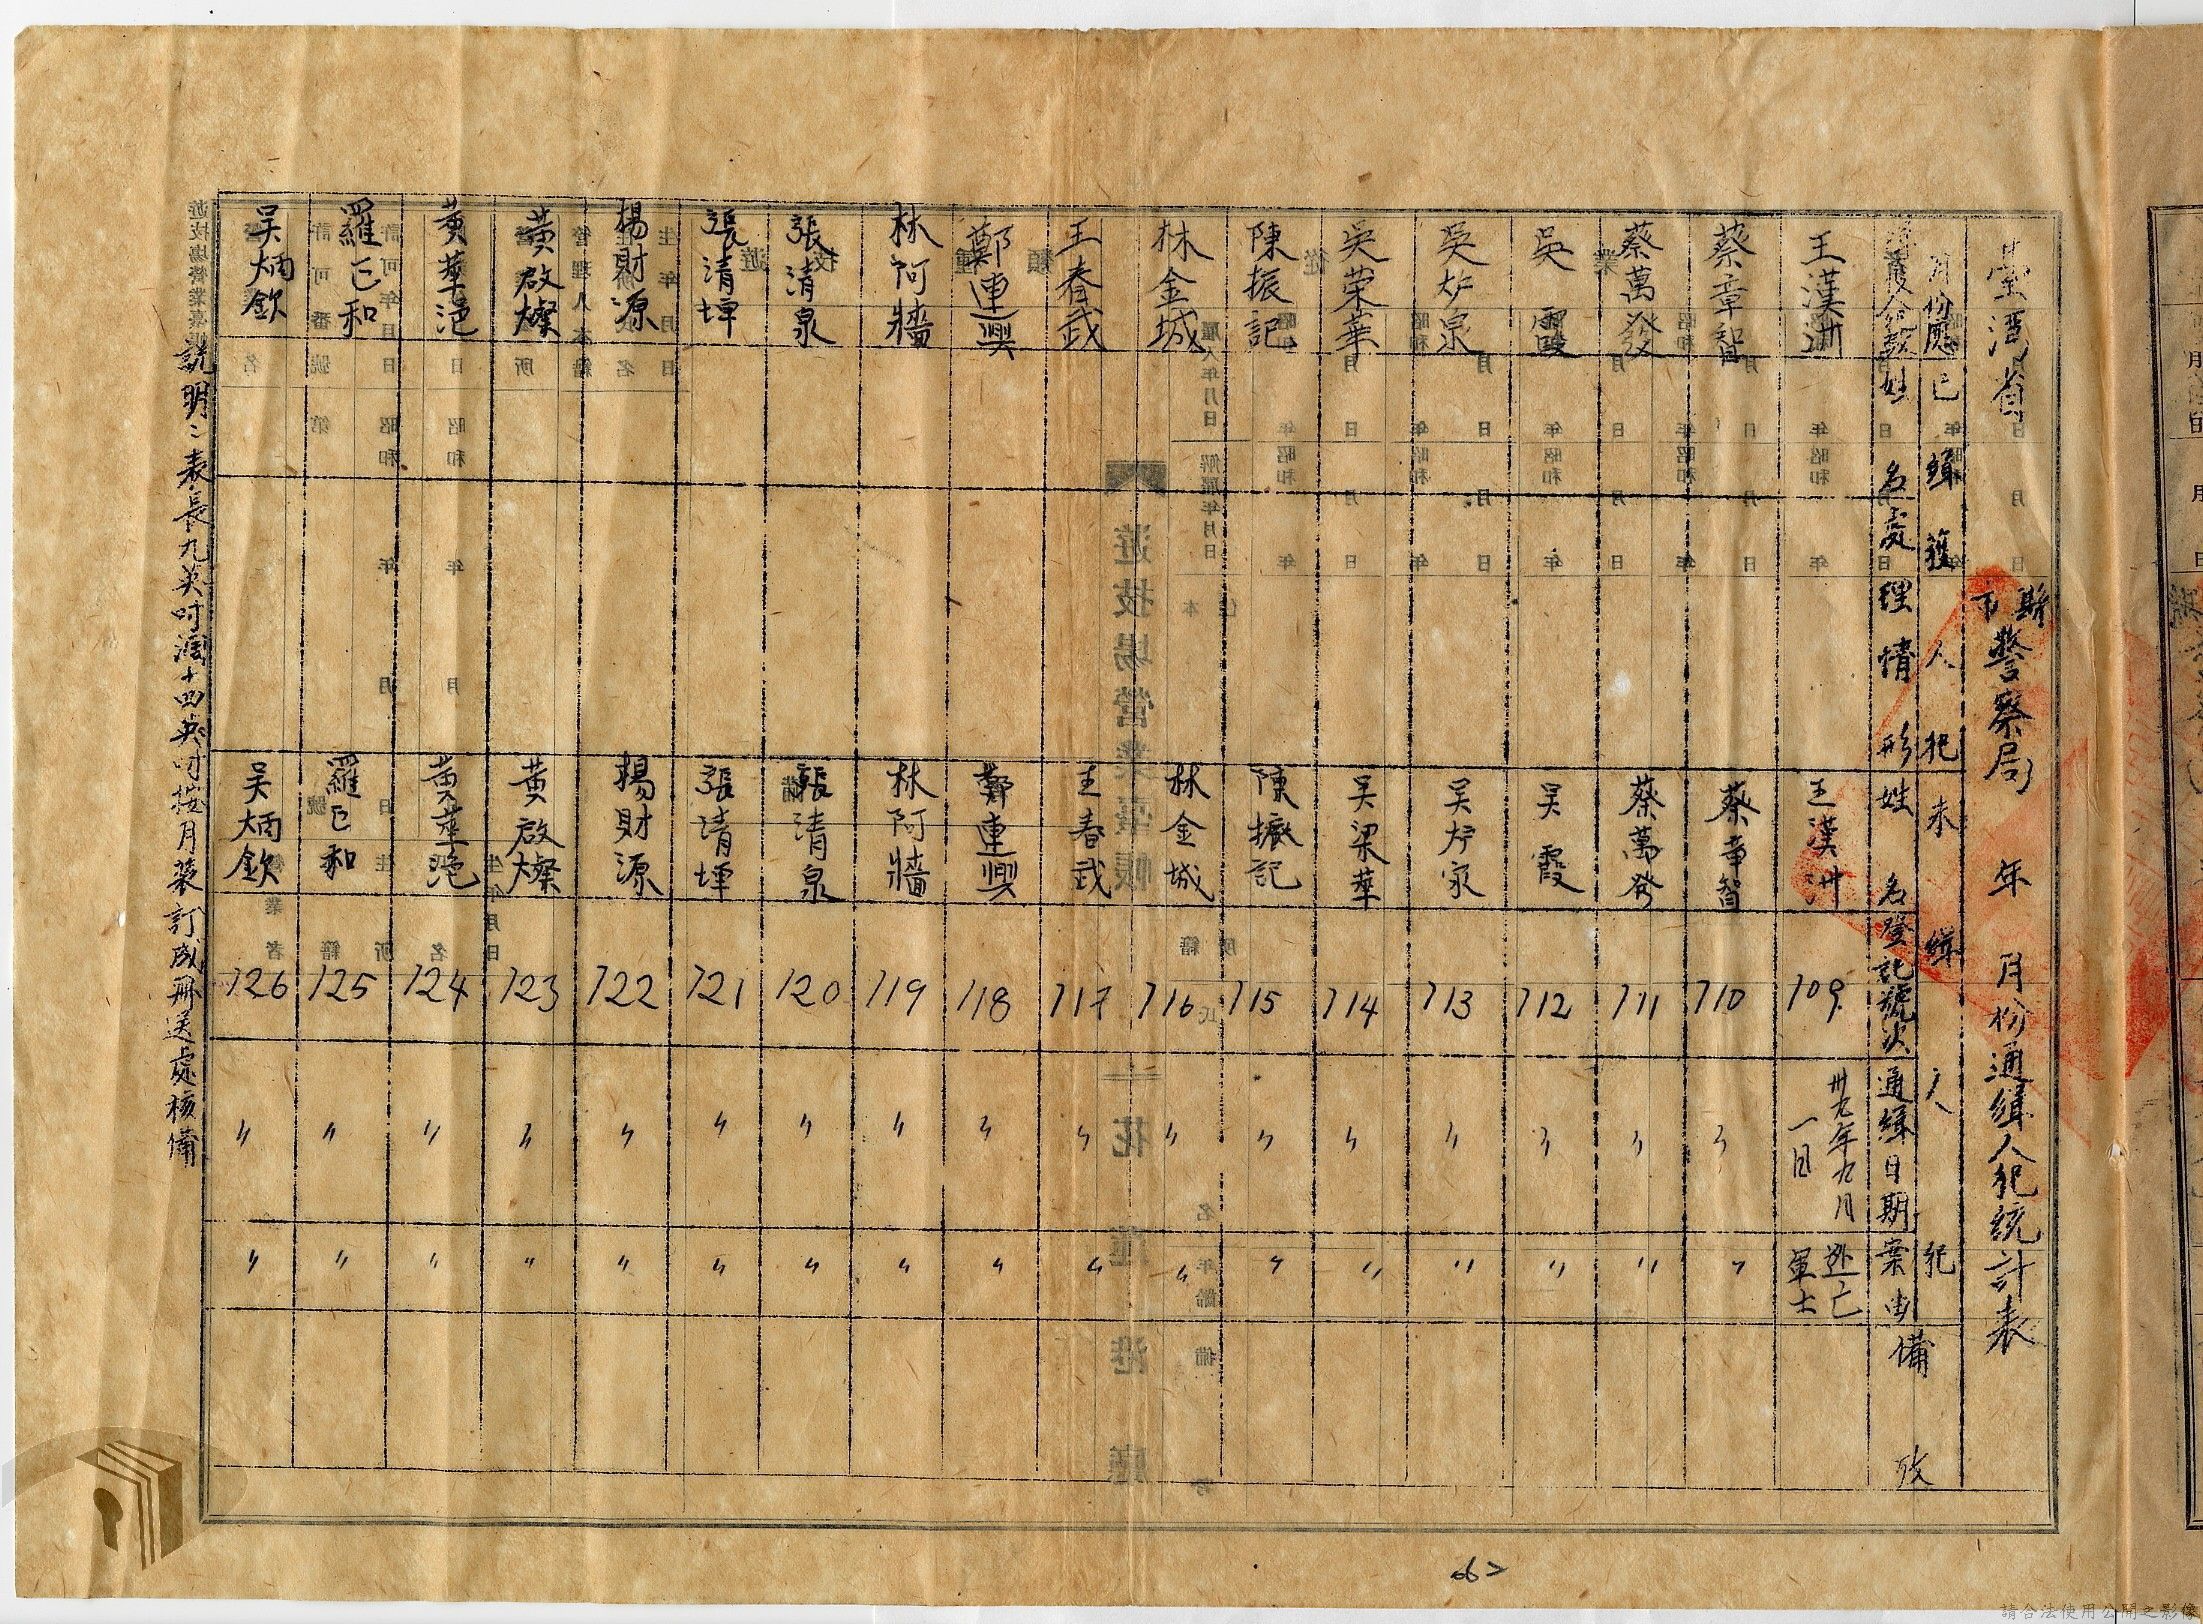 臺灣省 縣市 警察局 年 月份通緝人犯統計表
月份應已緝獲人犯 未緝人犯
姓名 處理情形 姓名 登記號次 通緝日期 案由 備攷
王漢洲 王漢洲 109 卅九年九月一日 逃亡軍士
蔡章智 蔡章智 110 〃 〃
蔡萬發 蔡萬發 111 〃 〃
吳霞 吴霞 112 〃 〃
吳炉泉 吴炉家 113 〃 〃
吳荣華 吴梁華 114 〃 〃
陳振記 陳振記 115 〃 〃
林金城 林金城 116 〃 〃
王春武 王春武 117 〃 〃
鄭連興 鄭連興 118 〃 〃
林阿牆 林阿牆 119 〃 〃
張清泉 張清泉 120 〃 〃
張清埤 張清埤 121 〃 〃
楊財源 楊財源 122 〃 〃
黄啟燦 黄啟燦 123 〃 〃
黄華滟 黄華滟 124 〃 〃
羅已和 羅已和 125 〃 〃
吴炳欽 吴炳欽 126 〃 〃
説明：表長九英吋濶十四英吋按月裝訂成冊送處核備
遊技場營業臺帳
花蓮港廳
662
請合法使用公開之影像